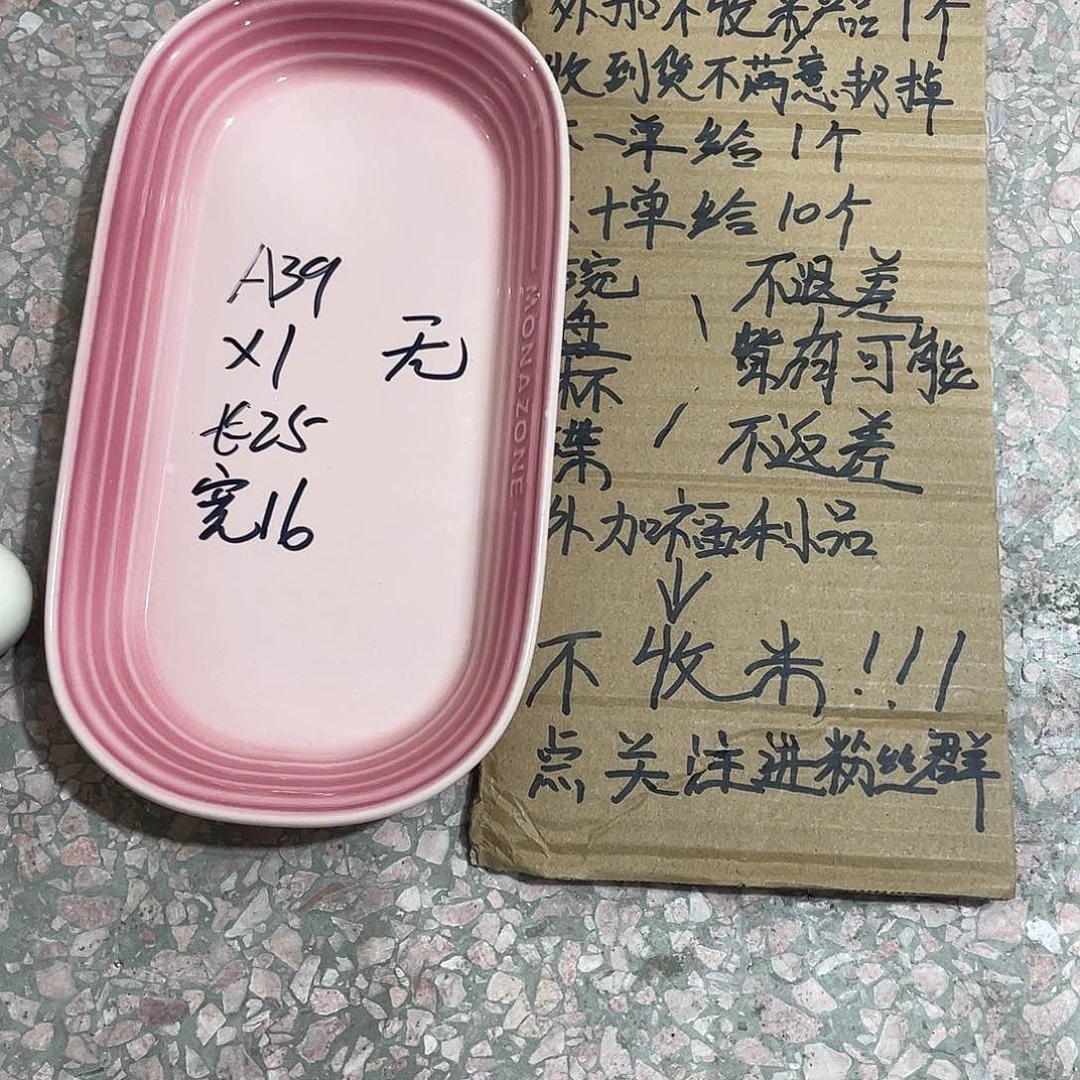 A39
X1
无
长25
宽16
MONAZONE
外加不收米产品1个
收到货不满意扔掉
一单给1个
十单给10个
碗、不退差
盘
杯 / 有可能
不返差
外加福利品
↓
不收米!!!
点关注进粉丝群